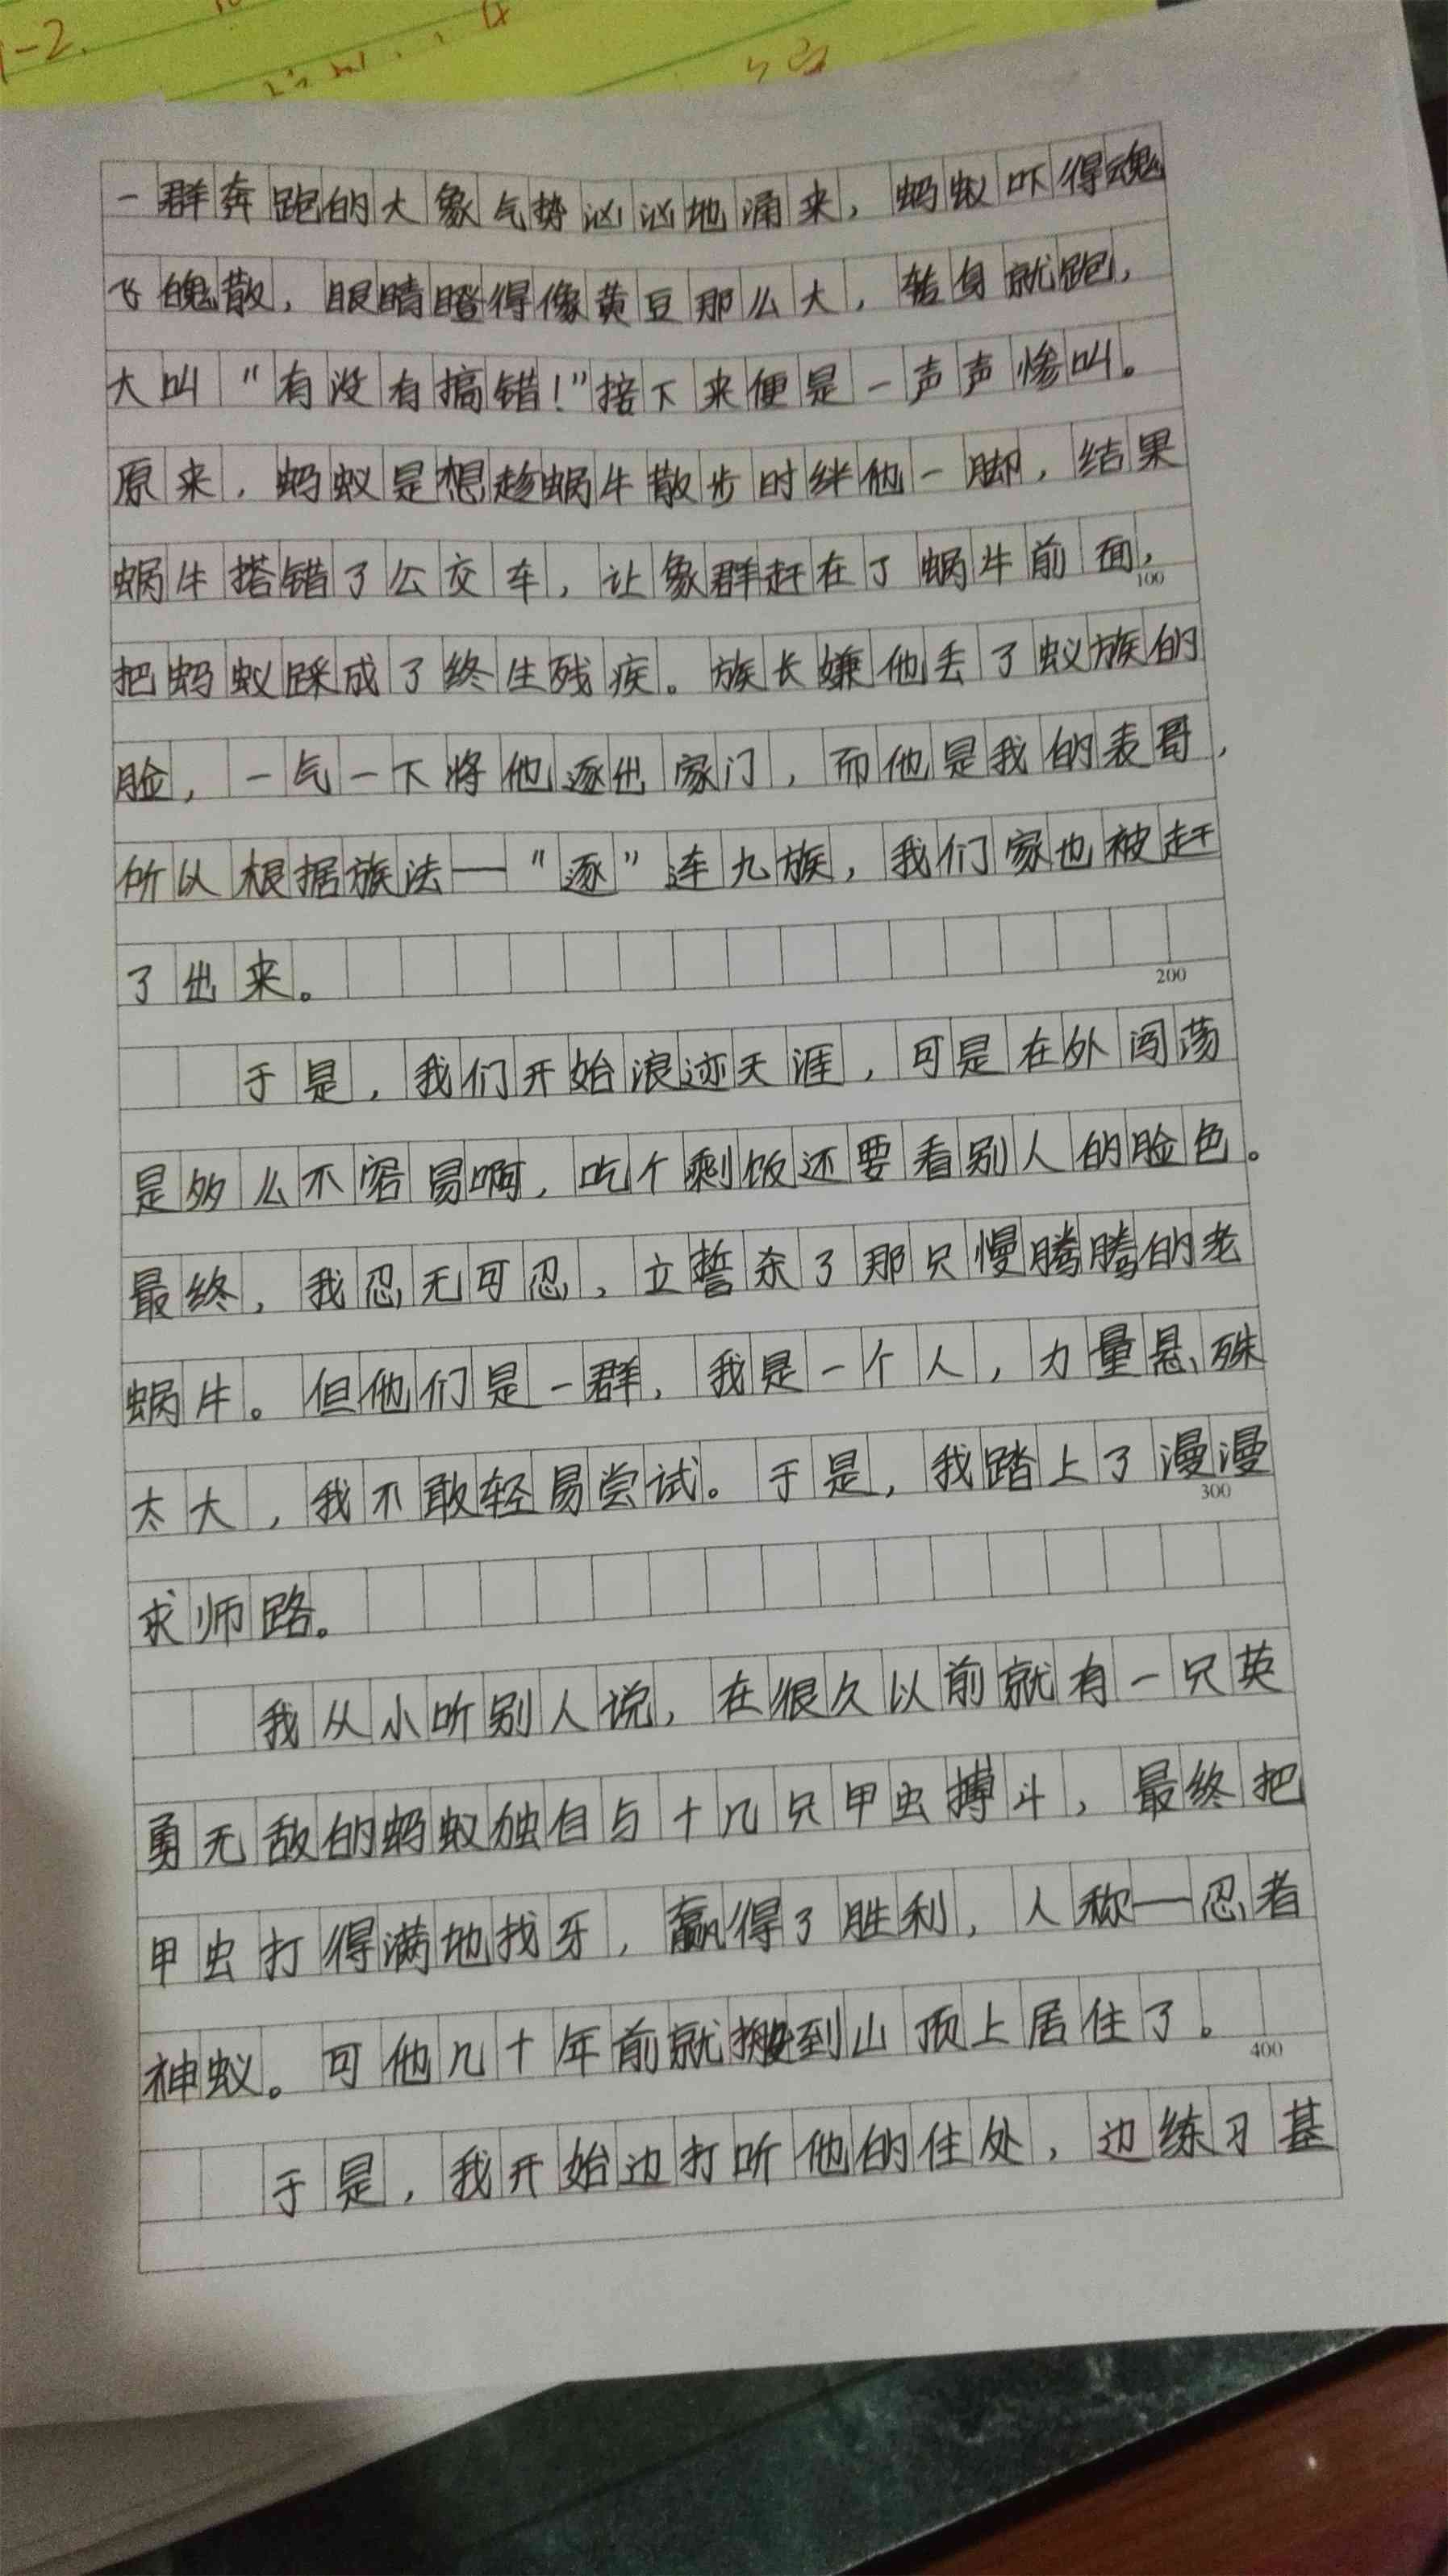 一群奔跑的大象气势汹汹地涌来，蚂蚁吓得魂
飞魄散，眼睛瞪得像黄豆那么大，转身就跑，
大叫“有没有搞错！”接下来便是一声声惨叫。
原来，蚂蚁是想趁蜗牛散步时绊他一脚，结果
蜗牛搭错了公交车，让象群赶在了蜗牛前面，
100
把蚂蚁踩成了终生残疾。族长嫌他丢了蚁族的
脸，一气一下将他逐出家门，而他是我的表哥，
所以根据族法—“逐”连九族，我们家也被赶
了出来。
200
于是，我们开始浪迹天涯，可是在外闯荡
是多么不容易啊，吃个剩饭还要看别人的脸色。
最终，我忍无可忍，立誓杀了那只慢腾腾的老
蜗牛。但他们是一群，我是一个人，力量悬殊
太大，我不敢轻易尝试。于是，我踏上了漫漫
300
求师路。
我从小听别人说，在很久以前就有一只英
勇无敌的蚂蚁独自与十几只甲虫搏斗，最终把
甲虫打得满地找牙，赢得了胜利，人称—忍者
神蚁。可他几十年前就搬到山顶上居住了。
400
于是，我开始边打听他的住处，边练习基